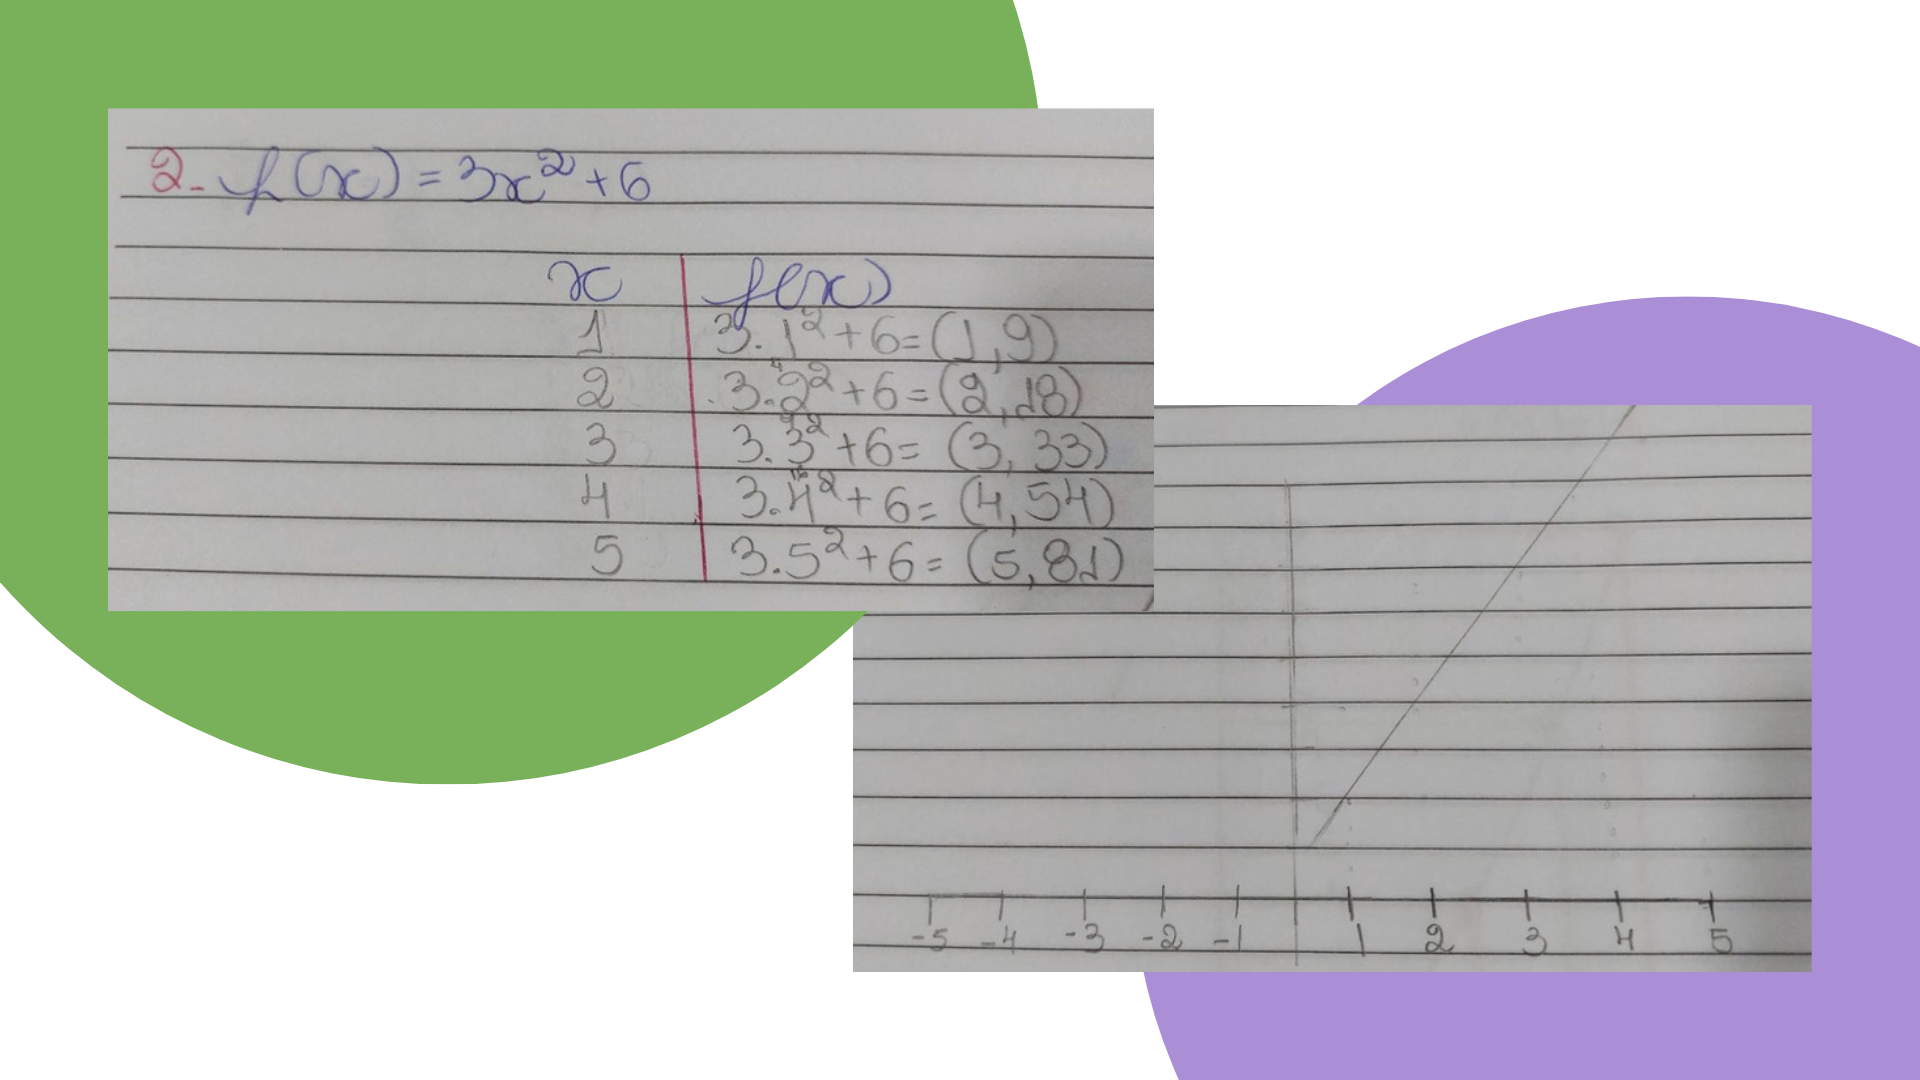 2- f(x) = 3x² + 6
x f(x)
1 3.1² + 6 = (1,9)
2 3.2² + 6 = (2,18)
3 3.3² + 6 = (3, 33)
4 3.4² + 6 = (4,54)
5 3.5² + 6 = (5,81)
-5 -4 -3 -2 -1 1 2 3 4 5